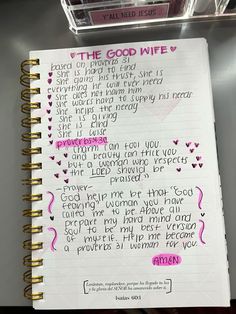 Y'ALL NEED JESUS
THE GOOD WIFE
based on proverbs 31
She is hard to find
She gains his trust, she is
everything he will ever need
She does not harm him
She works hard to supply his needs
She helps the needy
She is giving
She is kind
She is wise
proverbs 31:30
"Charm can fool you
and beauty can trick you
but a woman who respects
the LORD should be
praised."
-prayer-
God help me be that "God
fearing" woman you have
called me to be. Above all
prepare my hard mind and
soul to be my best version
of myself. Help me become
a proverbs 31 woman for you.
AMEN
Levántate, resplandece, porque ha llegado tu luz
y la gloria del SEÑOR ha amanecido sobre ti.
Isaías 60:1